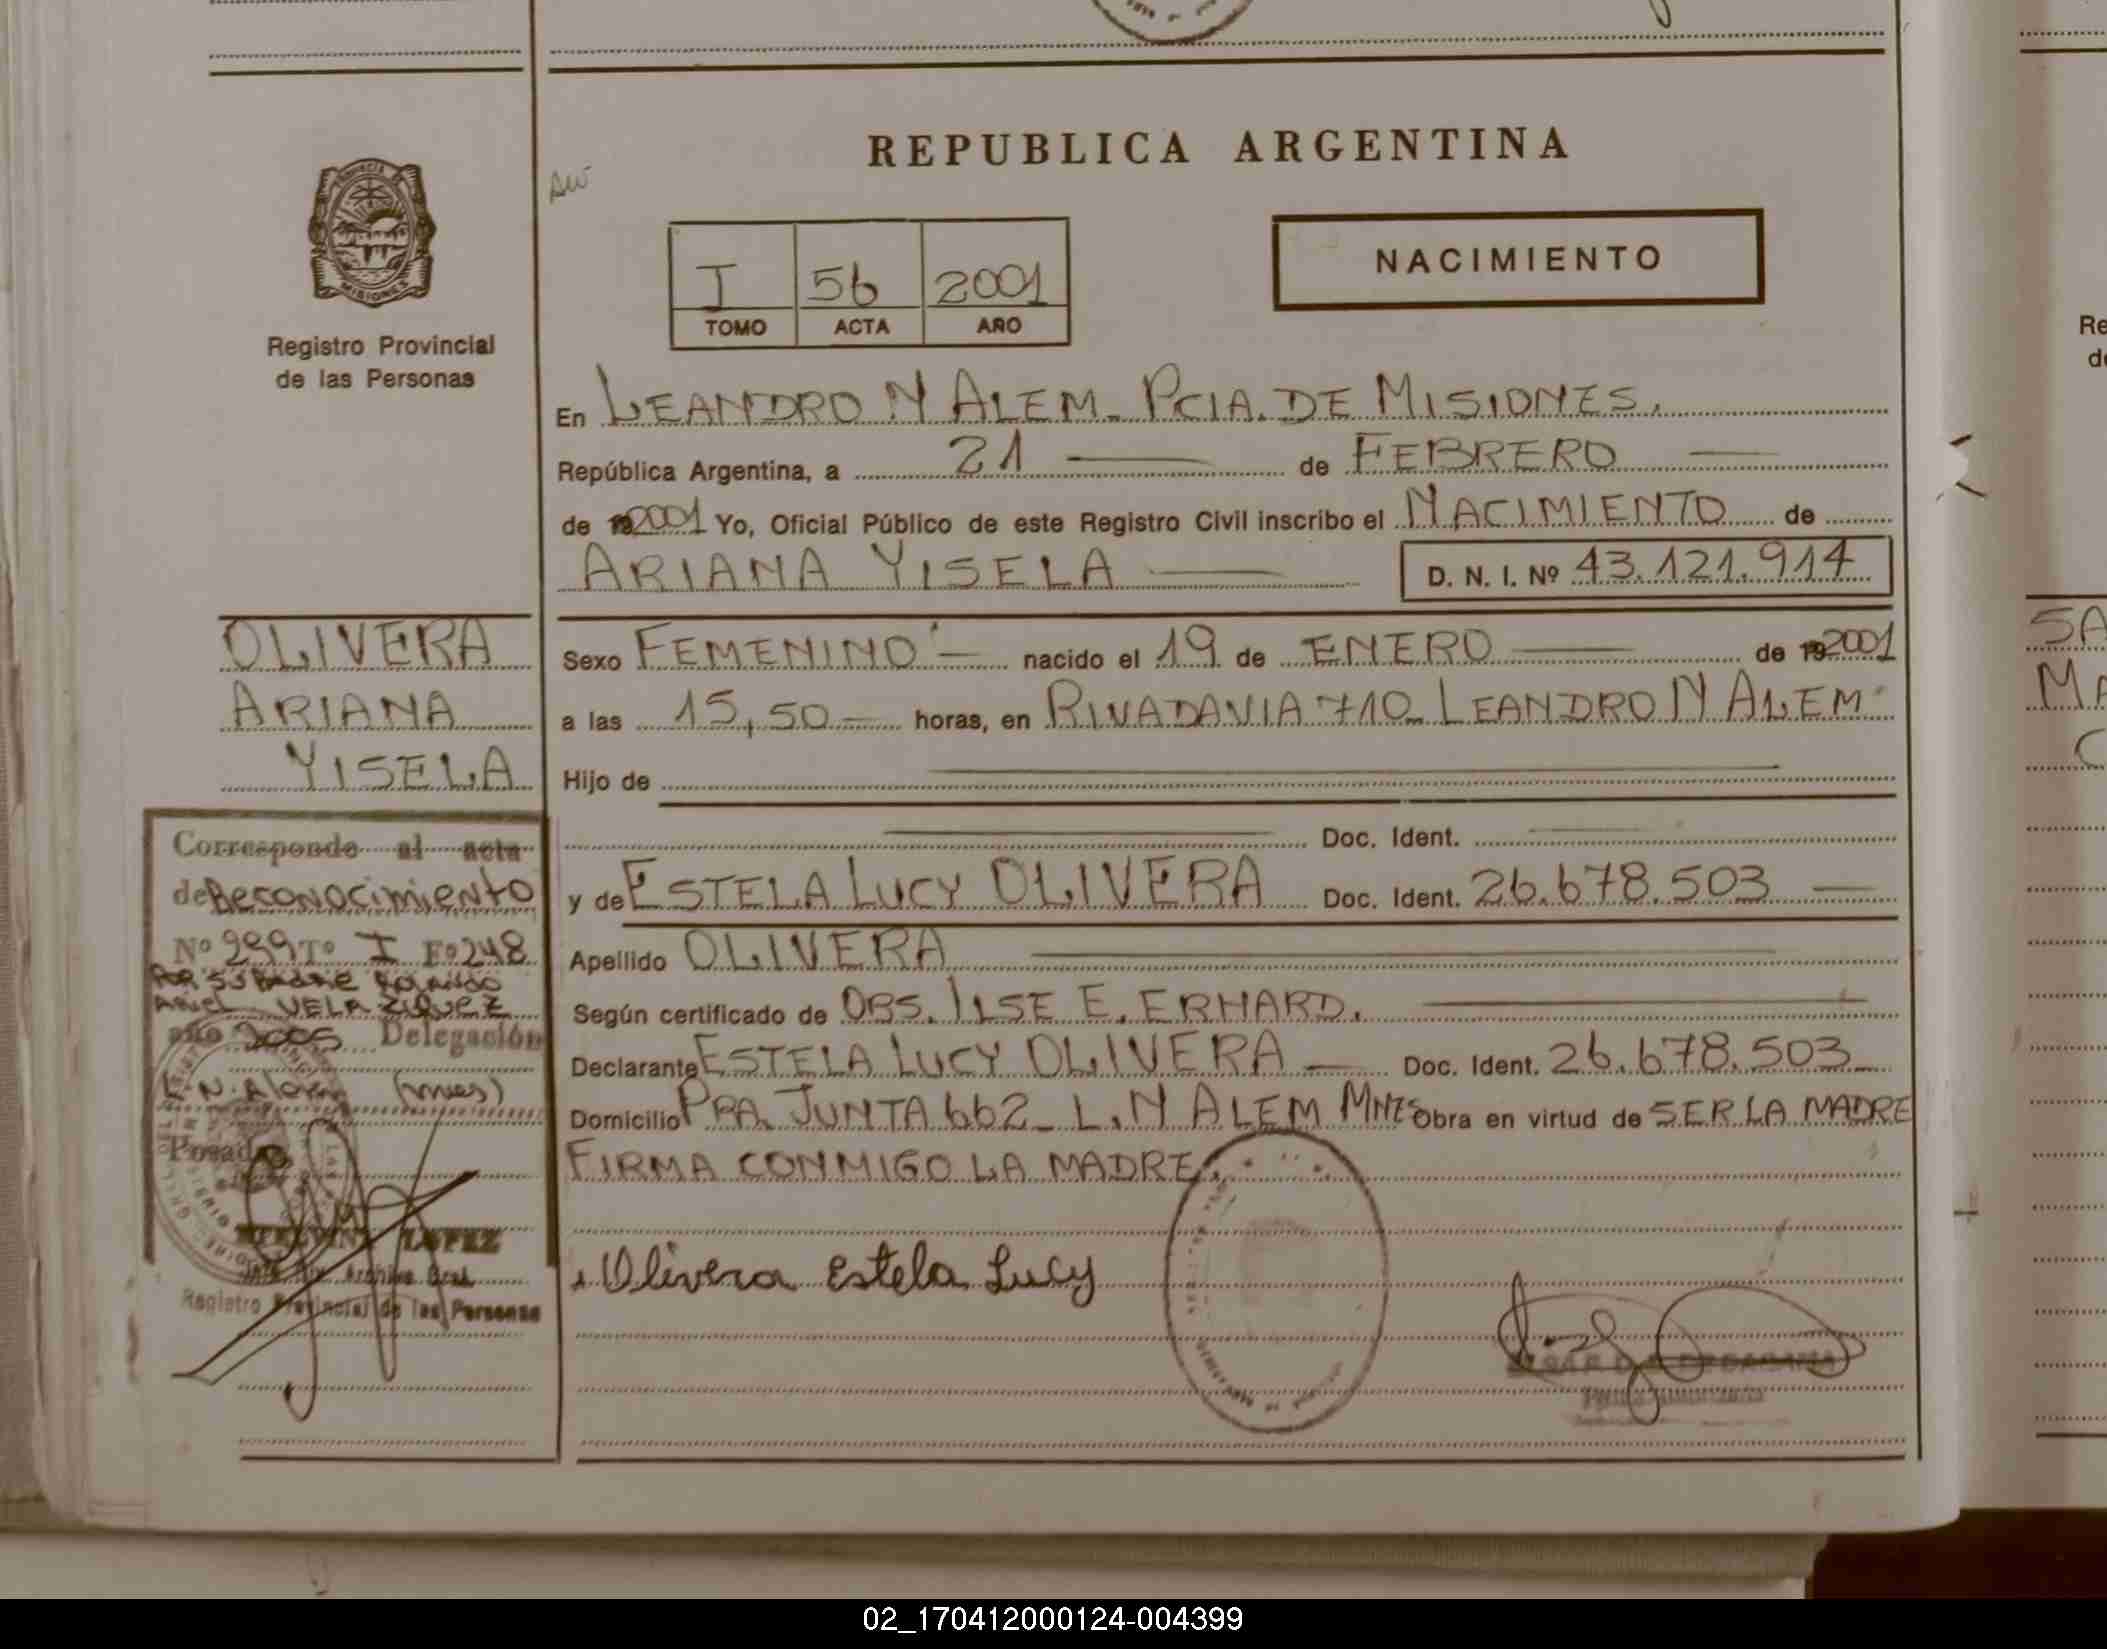 REPUBLICA ARGENTINA
PROVINCIA DE
MISIONES
Registro Provincial
de las Personas
I 56 2001
TOMO ACTA AÑO
NACIMIENTO
En LEANDRO N ALEM - PCIA. DE MISIONES.
República Argentina, a 21 — de FEBRERO —
de 192001 Yo, Oficial Público de este Registro Civil inscribo el NACIMIENTO de
ARIANA YISELA — D. N. I. Nº 43.121.914
OLIVERA
ARIANA
YISELA
Sexo FEMENINO — nacido el 19 de ENERO — de 192001
a las 15,50 — horas, en RIVADAVIA 710 - LEANDRO N ALEM
Hijo de —
— Doc. Ident. —
y de ESTELA LUCY OLIVERA Doc. Ident. 26.678.503 —
Apellido OLIVERA —
Según certificado de OBS. ILSE E. ERHARD. —
Declarante ESTELA LUCY OLIVERA — Doc. Ident. 26.678.503
Domicilio PRA. JUNTA 662 - L.N ALEM MNES Obra en virtud de SER LA MADRE
FIRMA CONMIGO LA MADRE.
Olivera Estela Lucy
Corresponde al acta
de Reconocimiento
Nº 299 Tº I Fº 248
POR SU PADRE ROLANDO
ARIEL VELAZQUEZ
año 2005 Delegación
L.N. Alem (mnes)
Posadas
LOPEZ
Archivo Gral.
Registro Provincial de las Personas
SA
MA
C
Re
de
02_170412000124-004399